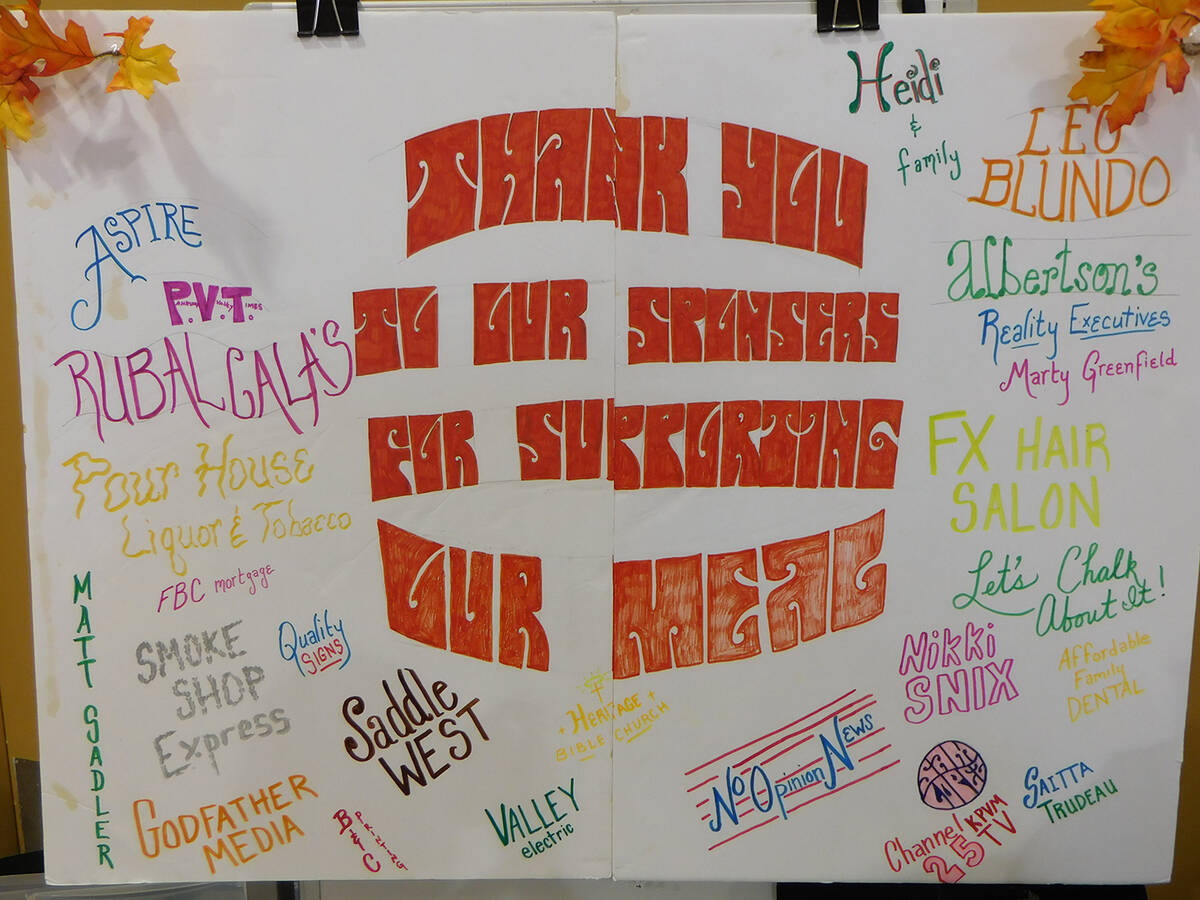 THANK YOU
TO OUR SPONSERS
FOR SUPPORTING
OUR MEAL
ASPIRE
P.V.T.
Pahrump Valley Times
RUBALCALA'S
Pour House
Liquor & Tobacco
FBC mortgage
MATT SADLER
SMOKE
SHOP
Express
Quality
SIGNS
Saddle
WEST
GODFATHER
MEDIA
PRINTING
VALLEY
electric
+ HERITAGE +
BIBLE CHURCH
Heidi
&
family
LEO
BLUNDO
Albertson's
Reality Executives
Marty Greenfield
FX HAIR
SALON
Let's Chalk
About It!
Nikki
SNIX
Affordable
Family
DENTAL
No Opinion News
Channel KPVM
25 TV
SAITTA
TRUDEAU